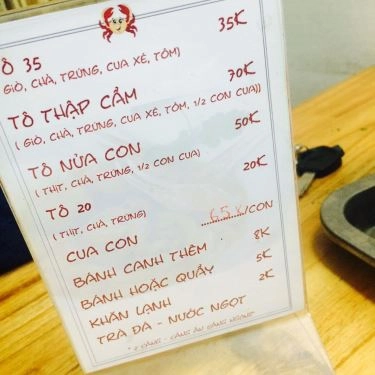 TÔ 35 35K
( GIÒ, CHẢ, TRỨNG, CUA XÉ, TÔM)
TÔ THẬP CẨM 70K
( GIÒ, CHẢ, TRỨNG, CUA XÉ, TÔM, 1/2 CON CUA))
TÔ NỬA CON 50K
( THỊT, CHẢ, TRỨNG, 1/2 CON CUA)
TÔ 20 20K
( THỊT, CHẢ, TRỨNG)
CUA CON 65K/CON
BÁNH CANH THÊM 8K
BÁNH HOẶC QUẨY 5K
KHĂN LẠNH 2K
TRÀ ĐÁ - NƯỚC NGỌT